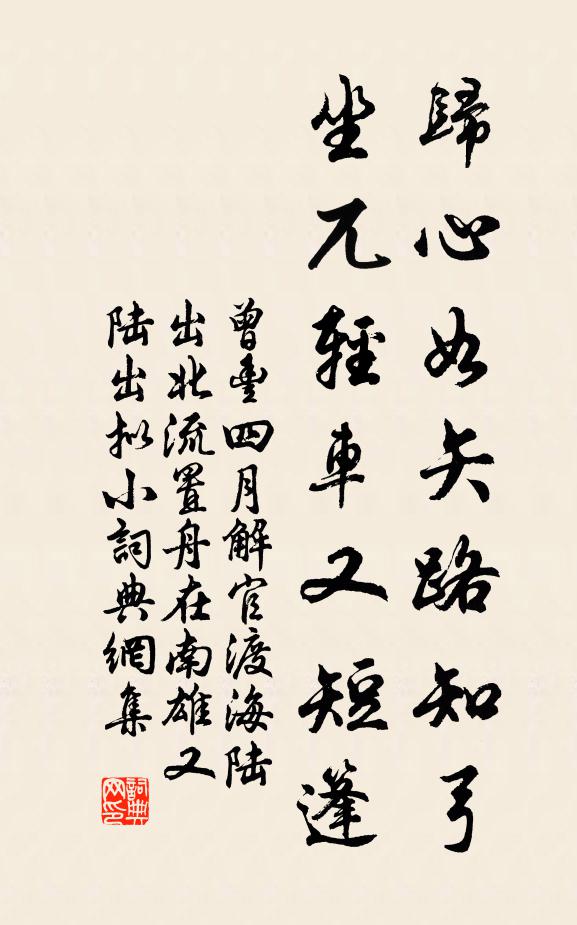 歸心如矢路知弓
坐兀輕車又短蓬
曾豐四月解官渡海陸
出北流置舟在南雄又
陸出拟小詞典網集
詞典
网印